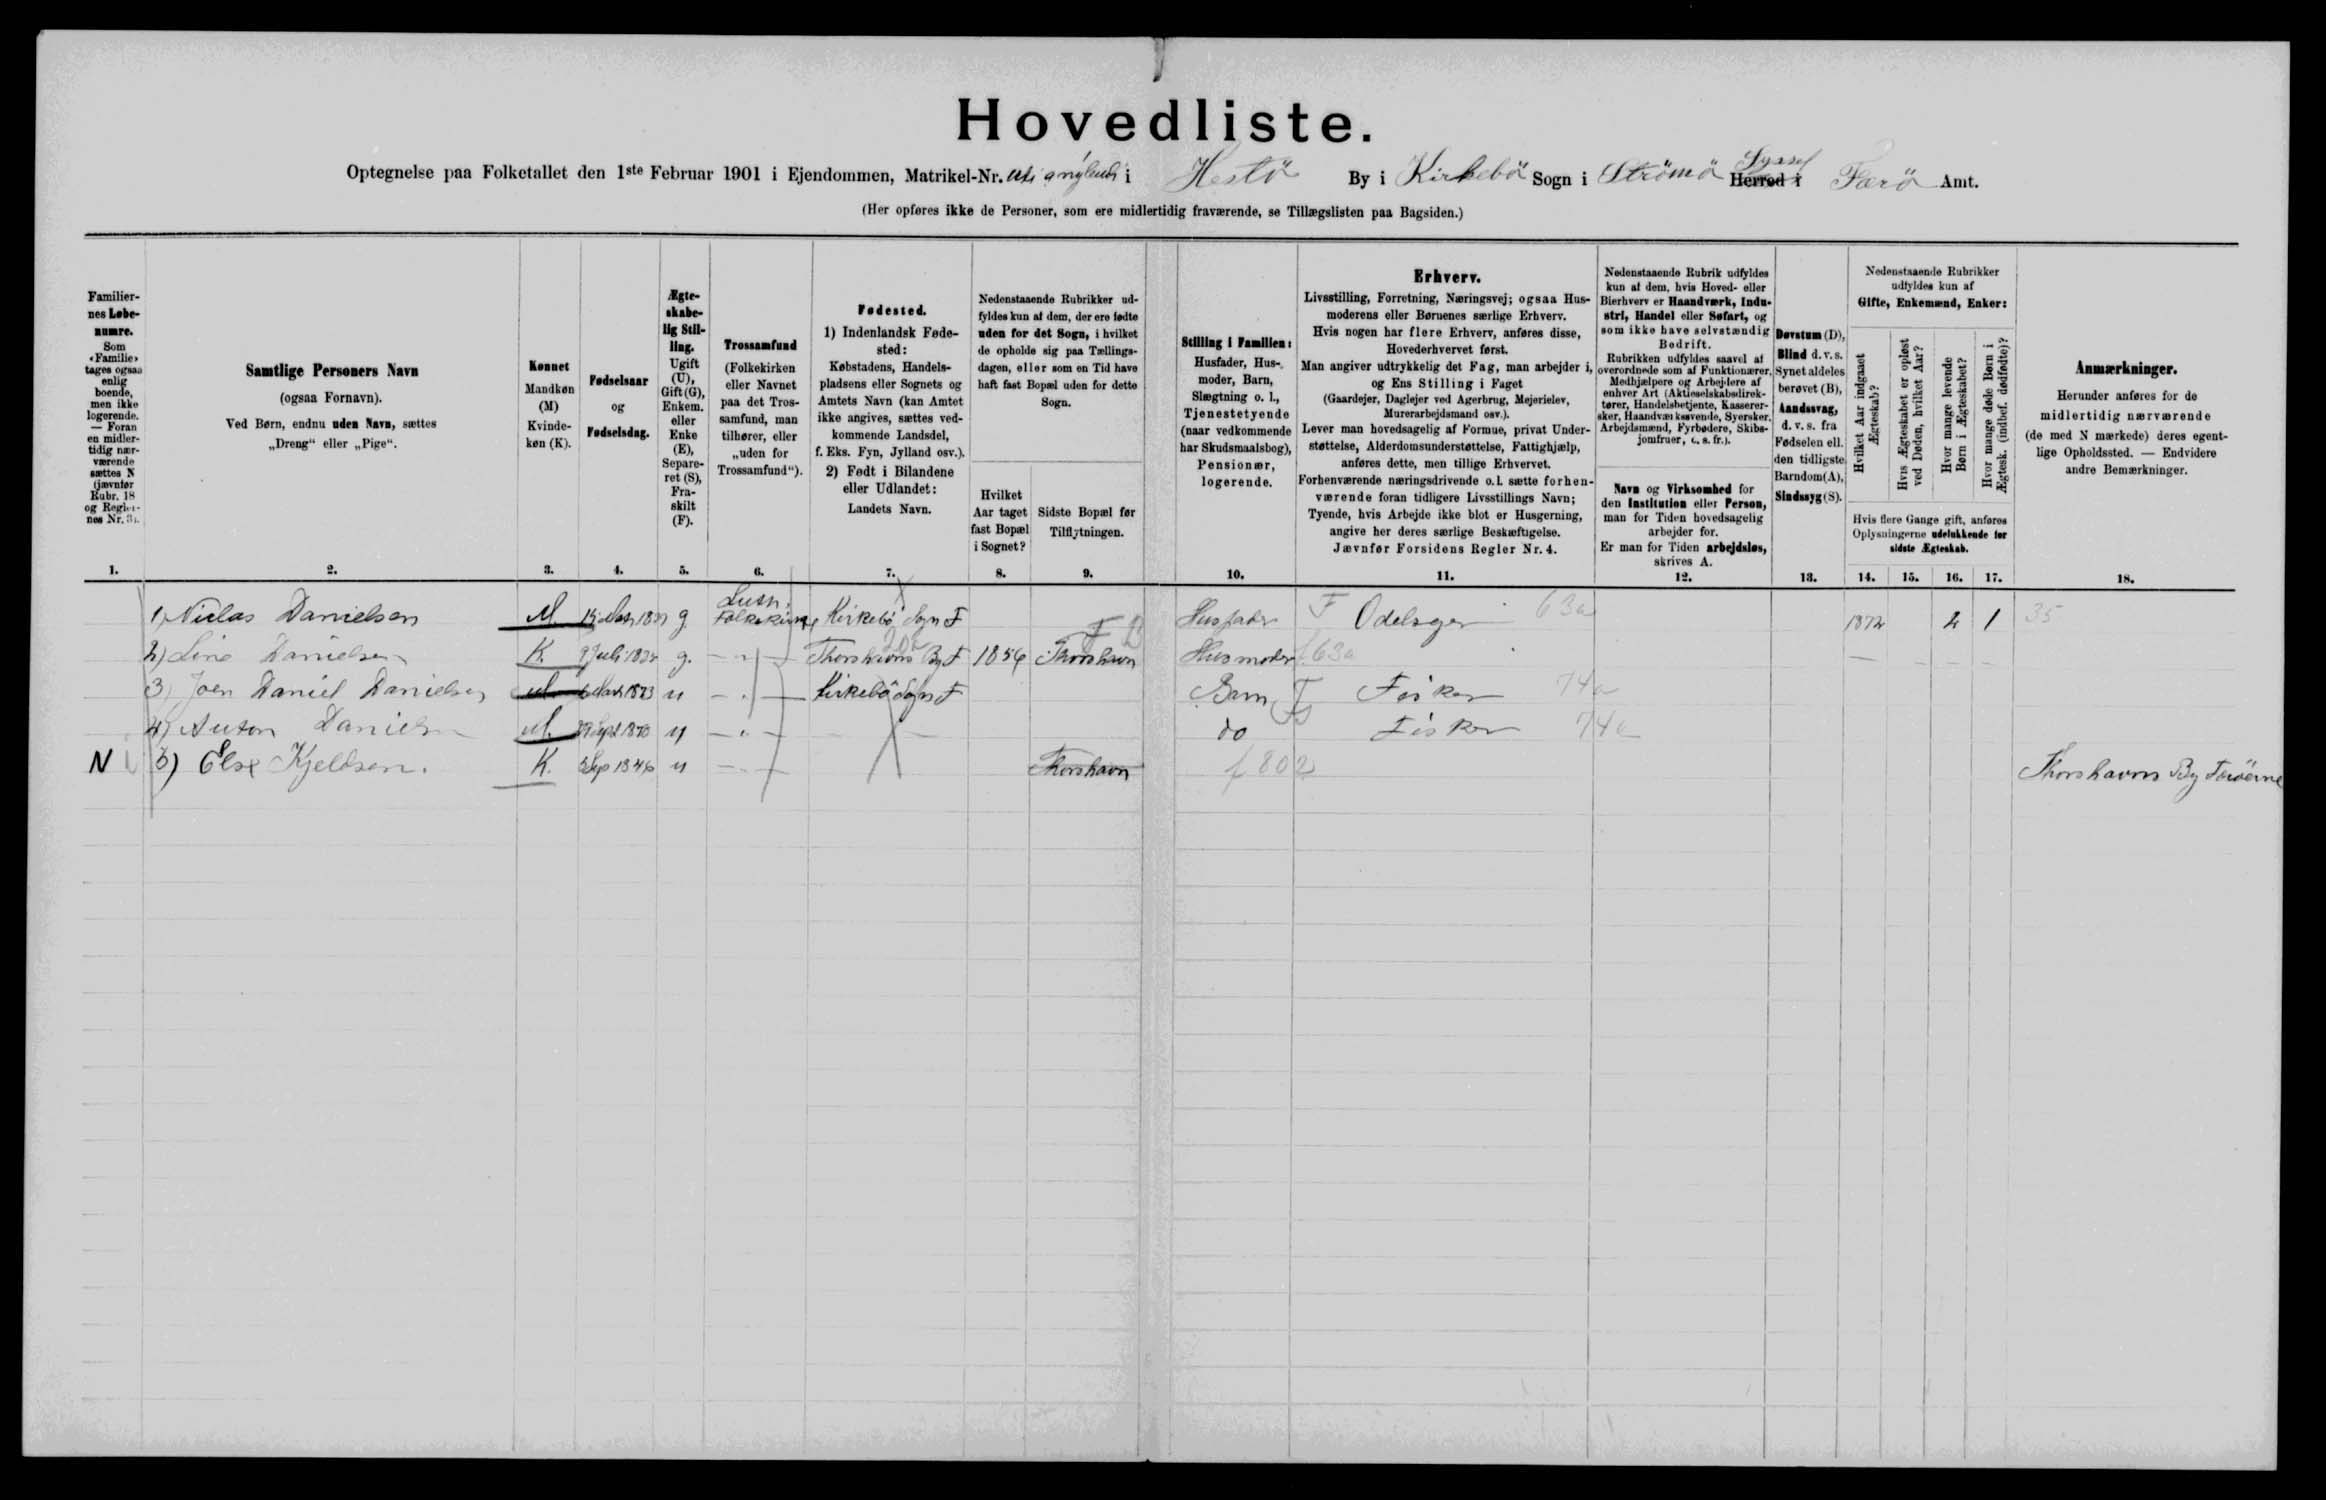 Hovedliste.
Optegnelse paa Folketallet den 1ste Februar 1901 i Ejendommen, Matrikel-Nr. i Hestö By i Kirkebö Sogn i Strömö Syssel Herred i Færö Amt.
(Her opføres ikke de Personer, som ere midlertidig fraværende, se Tillægslisten paa Bagsiden.)
Familier-
nes Løbe-
numre.
Som
«Familie»
tages ogsaa
enlig
boende,
men ikke
logerende.
— Foran
en midler-
tidig nær-
værende
sættes N
(jævnfør
Rubr. 18
og Regler-
nes Nr. 3).
1.
Samtlige Personers Navn
(ogsaa Fornavn).
Ved Børn, endnu uden Navn, sættes
„Dreng“ eller „Pige“.
2.
Kønnet
Mandkøn
(M)
Kvinde-
køn (K).
3.
Fødselsaar
og
Fødselsdag.
4.
Ægte-
skabe-
lig Stil-
ling.
Ugift
(U),
Gift (G),
Enkem.
eller
Enke
(E),
Separe-
ret (S),
Fra-
skilt
(F).
5.
Trossamfund
(Folkekirken
eller Navnet
paa det Tros-
samfund, man
tilhører, eller
„uden for
Trossamfund“).
6.
Fødested.
1) Indenlandsk Føde-
sted:
Købstadens, Handels-
pladsens eller Sognets og
Amtets Navn (kan Amtet
ikke angives, sættes ved-
kommende Landsdel,
f. Eks. Fyn, Jylland osv.).
2) Født i Bilandene
eller Udlandet:
Landets Navn.
7.
Nedenstaaende Rubrikker ud-
fyldes kun af dem, der ere fødte
uden for det Sogn, i hvilket
de opholde sig paa Tællings-
dagen, eller som en Tid have
haft fast Bopæl uden for dette
Sogn.
Hvilket
Aar taget
fast Bopæl
i Sognet?
8.
Sidste Bopæl før
Tilflytningen.
9.
Stilling i Familien:
Husfader, Hus-
moder, Barn,
Slægtning o. l.,
Tjenestetyende
(naar vedkommende
har Skudsmaalsbog),
Pensionær,
logerende.
10.
Erhverv.
Livsstilling, Forretning, Næringsvej; ogsaa Hus-
moderens eller Børnenes særlige Erhverv.
Hvis nogen har flere Erhverv, anføres disse,
Hovederhvervet først.
Man angiver udtrykkelig det Fag, man arbejder i,
og Ens Stilling i Faget
(Gaardejer, Daglejer ved Agerbrug, Mejerielev,
Murerarbejdsmand osv.).
Lever man hovedsagelig af Formue, privat Under-
støttelse, Alderdomsunderstøttelse, Fattighjælp,
anføres dette, men tillige Erhvervet.
Forhenværende næringsdrivende o. l. sætte forhen-
værende foran tidligere Livsstillings Navn;
Tyende, hvis Arbejde ikke blot er Husgerning,
angive her deres særlige Beskæftigelse.
Jævnfør Forsidens Regler Nr. 4.
11.
Nedenstaaende Rubrik udfyldes
kun af dem, hvis Hoved- eller
Bierhverv er Haandværk, Indu-
stri, Handel eller Søfart, og
som ikke have selvstændig
Bedrift.
Rubrikken udfyldes saavel af
overordnede som af Funktionærer,
Medhjælpere og Arbejdere af
enhver Art (Aktieselskabsdirek-
tører, Handelsbetjente, Kasserer-
sker, Haandværkssvende, Syersker,
Arbejdsmænd, Fyrbødere, Skibs-
jomfruer, o. s. fr.).
Navn og Virksomhed for
den Institution eller Person,
man for Tiden hovedsagelig
arbejder for.
Er man for Tiden arbejdsløs,
skrives A.
12.
Døvstum (D),
Blind d. v. s.
Synet aldeles
berøvet (B),
Aandssvag,
d. v. s. fra
Fødselen ell.
den tidligste
Barndom (A),
Sindssyg (S).
13.
Nedenstaaende Rubrikker
udfyldes kun af
Gifte, Enkemænd, Enker:
Hvilket Aar indgaaet
Ægteskab?
Hvis Ægteskabet er opløst
ved Døden, hvilket Aar?
Hvor mange levende
Børn i Ægteskabet?
Hvor mange døde Børn i
Ægtesk. (indbef. dødfødte)?
Hvis flere Gange gift, anføres
Oplysningerne udelukkende for
sidste Ægteskab.
14. 15. 16. 17.
Anmærkninger.
Herunder anføres for de
midlertidig nærværende
(de med N mærkede) deres egent-
lige Opholdssted. — Endvidere
andre Bemærkninger.
18.
1) Niclas Danielsen M. g Luth. Folkekirke Kirkebö Sogn F Husfader F Odelsger 63a 1872 2 1 35
2) Line Danielsen K. g. — " — Thorshavns By F 1856 Thorshavn Husmoder f.63a
3) Joen Daniel Danielsen M 1873 u — " — Kirkebö Sogn F Barn F Fisker 74a
4) Anton Danielsen M. 1870 u — " — do Fisker 74a
N 5) Else Kjeldsen. K. u — " — Thorshavn f 802 Thorshavns By Færöerne